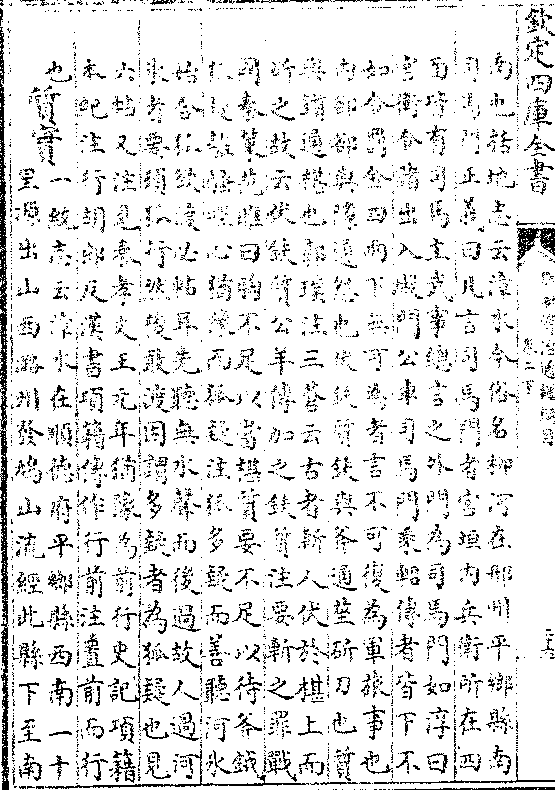 欽定四庫全書
南也括地志云漳水今俗名柳河在邢州平鄉縣南
司馬門正義曰凡言司馬門者宫垣内兵衛所在四
面皆有司馬主武事總言之外門為司馬門如淳曰
宫衛令諸出入殿門公車司馬門乘軺傳者皆下不
如令罰金四兩下無可為者言不可復為軍旅事也
南鄣鄣與障通然也伏鈇質鈇與斧通莝斫刀也質
與鑕通椹也郭璞注三蒼云古者斬人伏於椹上而
斫之故云伏鈇質公羊傳加之鈇質注要斬之罪戰
國秦策范雎曰胸不足以當椹質要不足以待斧鉞
狐疑心猶豫而狐疑注狐多疑而善聽河氷
始合狐欲渡必帖耳先聽無水聲而後過故人過河
氷者要須狐行然後敢渡因謂多疑者為狐疑也見
六帖又注見秦孝文王元年猶豫為前行史記項籍
本紀注行胡郎反漢書項籍傳作行前注置前而行
也質實一統志云漳水在順德府平鄉縣西南一十
里源出山西潞州發鳩山流經此縣下至南